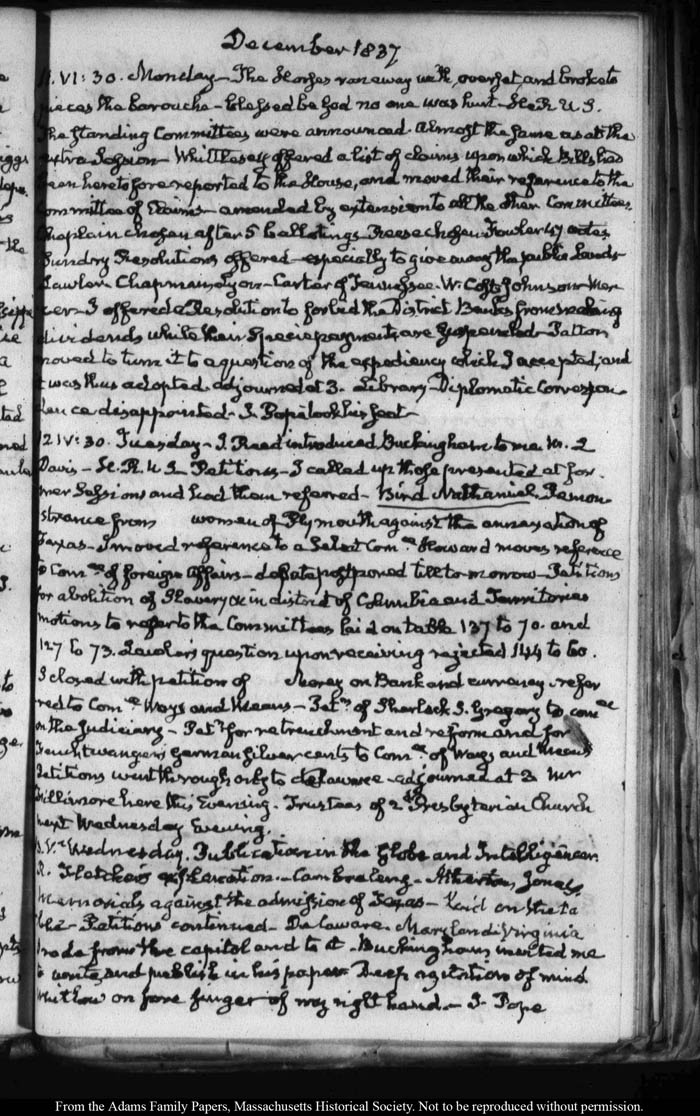 December 1837
VI:30. Monday—The Horses ran away with, overset, and broke to
pieces the barouche—blessed be God no one was hurt—He.R U.S.
The Standing Committees were announced. Almost the same as at the
extra Session—Whittlesey offered a list of claims upon which Bills had
been heretofore reported to the House, and moved their reference to the
Committee of Claims—amended by extension to all the other Committees.
Chaplain chosen after 5 ballotings—Reese chosen—Fowler 47 votes
Sundry Resolutions offered—especially to give away the public Lands—
Lawler Chapman Lyon—Carter of Tennessee. W. Cost Johnson Mer
cer—I offered a Resolution to forbid the District Banks from making
dividends while their Specie payments are suspended—Patton
moved to turn it to a question of the expediency which I accepted, and
it was thus adopted. adjourned at 3. Library—Diplomatic Correspon-
dence disappointed—J. Pope took his seat—
12 IV:30. Tuesday—J. Reed introduced Buckingham to me. M. 2
Davis—He.R. U S Petitions—I called up those presented at for-
mer Sessions and had them referred—Bird Nathaniel. Remon-
strance from women of Plymouth against the annexation of
Texas—I moved reference to a Select Comee. Howard moves reference
to Comee of foreign Affairs—debate postponed till to-morrow—Petitions
for abolition of Slavery &c in district of Columbia and Territories
motions to refer to the Committees laid on table 137 to 70. and
127 to 73. Lawler's question upon receiving rejected 144 to 60.
I closed with petition of Morey on Bank and currency. refer
red to Comee Ways and Means—Petn. of Sharlock S. Gregory to comee
on the Judiciary—Petn. for retrenchment and reform and for
Feuchtwanger's German Silver cents to Comee. of Ways and Means
Petitions went through only to Delaware—adjourned at 3 Mr
Fillimore here this Evening. Trustees of 2d. Presbyterian Church
next Wednesday Evening.
V. Wednesday. Publication in the Globe and Intelligencer.
R. Fletcher's explanation.—Cambreleng—Atherton, Jones,
Memorials against the admission of Texas—laid on the ta
ble—Petitions continued—Delaware. Maryland Virginia
rode from the capitol and to it. Buckingham invited me
to write and publish in his paper. Deep agitation of mind.
Whitlow on fore finger of my right hand.—J. Pope
From the Adams Family Papers, Massachusetts Historical Society. Not to be reproduced without permission.